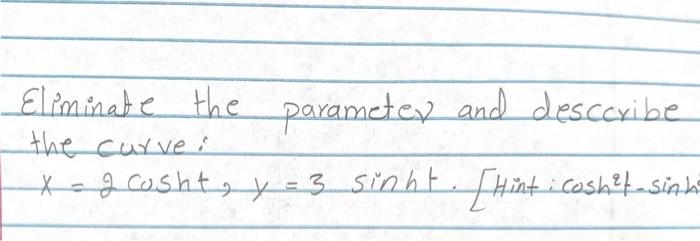 Eliminate the parameter and desccribe
the curve:
x = 2 cosht, y = 3 sinht. [Hint: cosh²t - sinh²